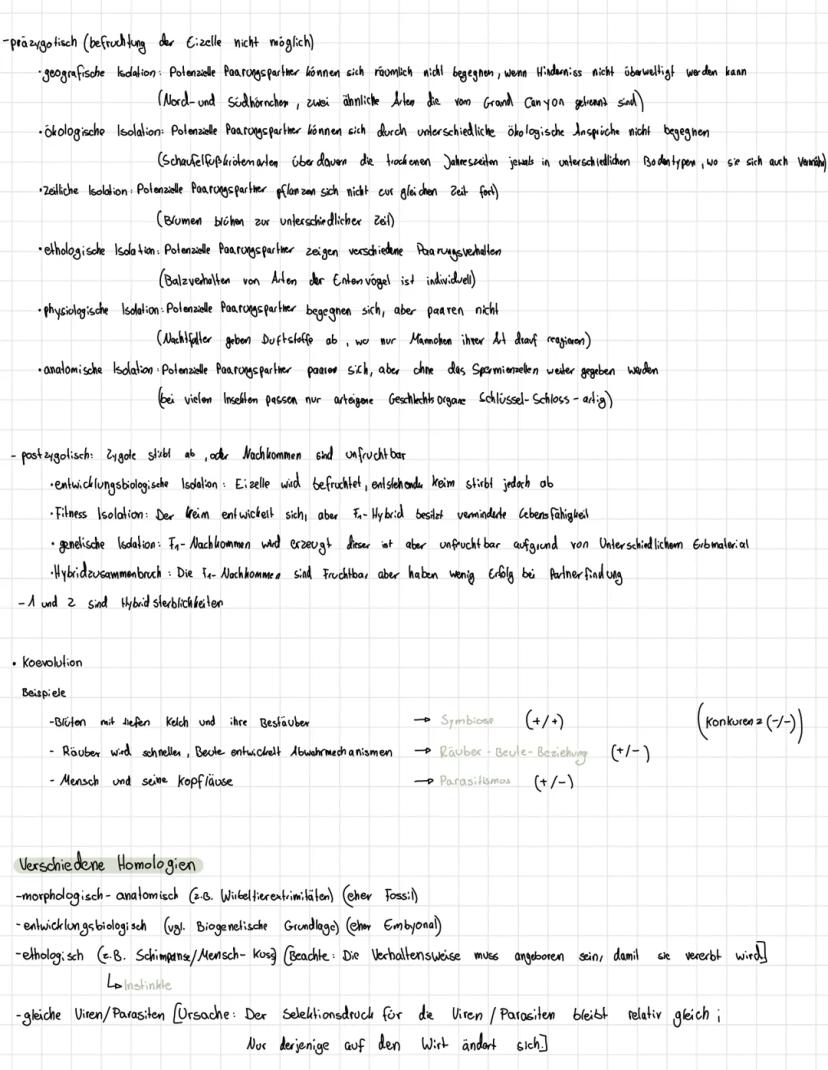 -präzygotisch (befruchtung der Eizelle nicht möglich)
·geografische Isolation: Potenzielle Paarungspartner können sich räumlich nicht begegnen, wenn Hinderniss nicht überweltigt werden kann
(Nord-und Südhörnchen, zwei ähnliche Arten die vom Grand Canyon getrennt sind)
·ökologische Isolation: Potenzielle Paarungspartner können sich durch unterschiedliche ökologische Ansprüche nicht begegnen
(Schaufelfußkrötenarten überdauern die trockenen Jahreszeiten jeweils in unterschiedlichen Bodentypen, wo sie sich auch
·zeitliche Isolation: Potenzielle Paarungspartner pflanzen sich nicht zur gleichen Zeit fort)
(Blumen blühen zur unterschiedlicher Zeit)
·ethologische Isolation: Potenzielle Paarungspartner zeigen verschiedene Paarungsverhalten
(Balzverhalten von Arten der Entenvögel ist individuell)
·physiologische Isolation: Potenzielle Paarungspartner begegnen sich, aber paaren nicht
(Nachtfalter geben Duftstoffe ab, wo nur Männchen ihrer Art drauf reagieren)
·anatomische Isolation: Potenzielle Paarungspartner paaren sich, aber ohne das Spermienzellen weiter gegeben werden
(bei vielen Insekten passen nur arteigene Geschlechtsorgane Schlüssel-Schloss-artig)
- postzygotisch: Zygote stirbt ab, oder Nachkommen sind unfruchtbar
·entwicklungsbiologische Isolation: Eizelle wird befruchtet, entstehende Keim stirbt jedoch ab
·Fitness Isolation: Der Keim entwickelt sich, aber F₁-Hybrid besitzt verminderte Lebensfähigkeit
·genetische Isolation: F₁-Nachkommen wird erzeugt dieser ist aber unfruchtbar aufgrund von Unterschiedlichem Erbmaterial
·Hybridzusammenbruch: Die F₁-Nachkommen sind Fruchtbar aber haben wenig Erfolg bei Partnerfindung
-1 und 2 sind Hybridsterblichkeiten
• Koevolution
Beispiele
-Blüten mit tiefen Kelch und ihre Bestäuber → Symbiose (+/+) (Konkurenz (-/-))
- Räuber wird schneller, Beute entwickelt Abwehrmechanismen → Räuber-Beute-Beziehung (+/-)
- Mensch und seine Kopfläuse → Parasitismus (+/-)
Verschiedene Homologien
-morphologisch-anatomisch (z.B. Wirbeltierextrimitäten) (eher Fossil)
-entwicklungsbiologisch (vgl. Biogenetische Grundlage) (eher Embyonal)
-ethologisch (z.B. Schimpanse/Mensch-Kuss) (Beachte: Die Verhaltensweise muss angeboren sein, damit sie vererbt wird]
↳Instinkte
-gleiche Viren/Parasiten [Ursache: Der Selektionsdruck für die Viren/Parasiten bleibt relativ gleich;
Nur derjenige auf den Wirt ändert sich.]